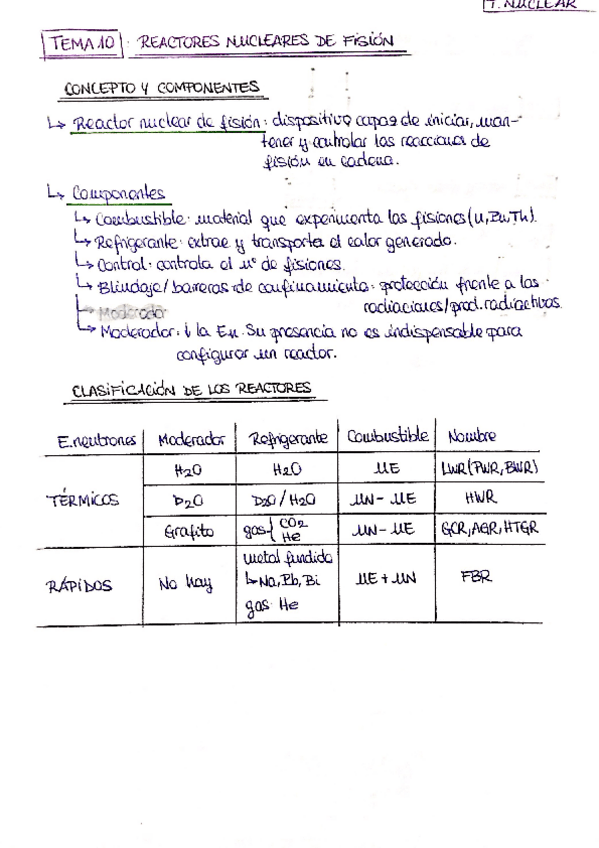 T. NUCLEAR
TEMA 10: REACTORES NUCLEARES DE FISIÓN
CONCEPTO Y COMPONENTES
↳ Reactor nuclear de fisión: dispositivo capaz de iniciar, man-
tener y controlar las reacciones de
fisión en cadena.
↳ Componentes
↳ Combustible: material que experimenta las fisiones (U, Pu, Th).
↳ Refrigerante: extrae y transporta el calor generado.
↳ Control: controla el nº de fisiones.
↳ Blindaje/barreras de confinamiento: protección frente a las
radiaciones/prod. radiactivos.
↳ Moderador
↳ Moderador: ↓ la En. Su presencia no es indispensable para
configurar un reactor.
CLASIFICACIÓN DE LOS REACTORES
E. neutrones Moderador Refrigerante Combustible Nombre
H2O H2O UE LWR (PWR, BWR)
TÉRMICOS D2O D2O / H2O UN - UE HWR
Grafito gas { CO2 He UN - UE GCR, AGR, HTGR
metal fundido
RÁPIDOS No hay ↳ Na, Pb, Bi UE + UN FBR
gas He